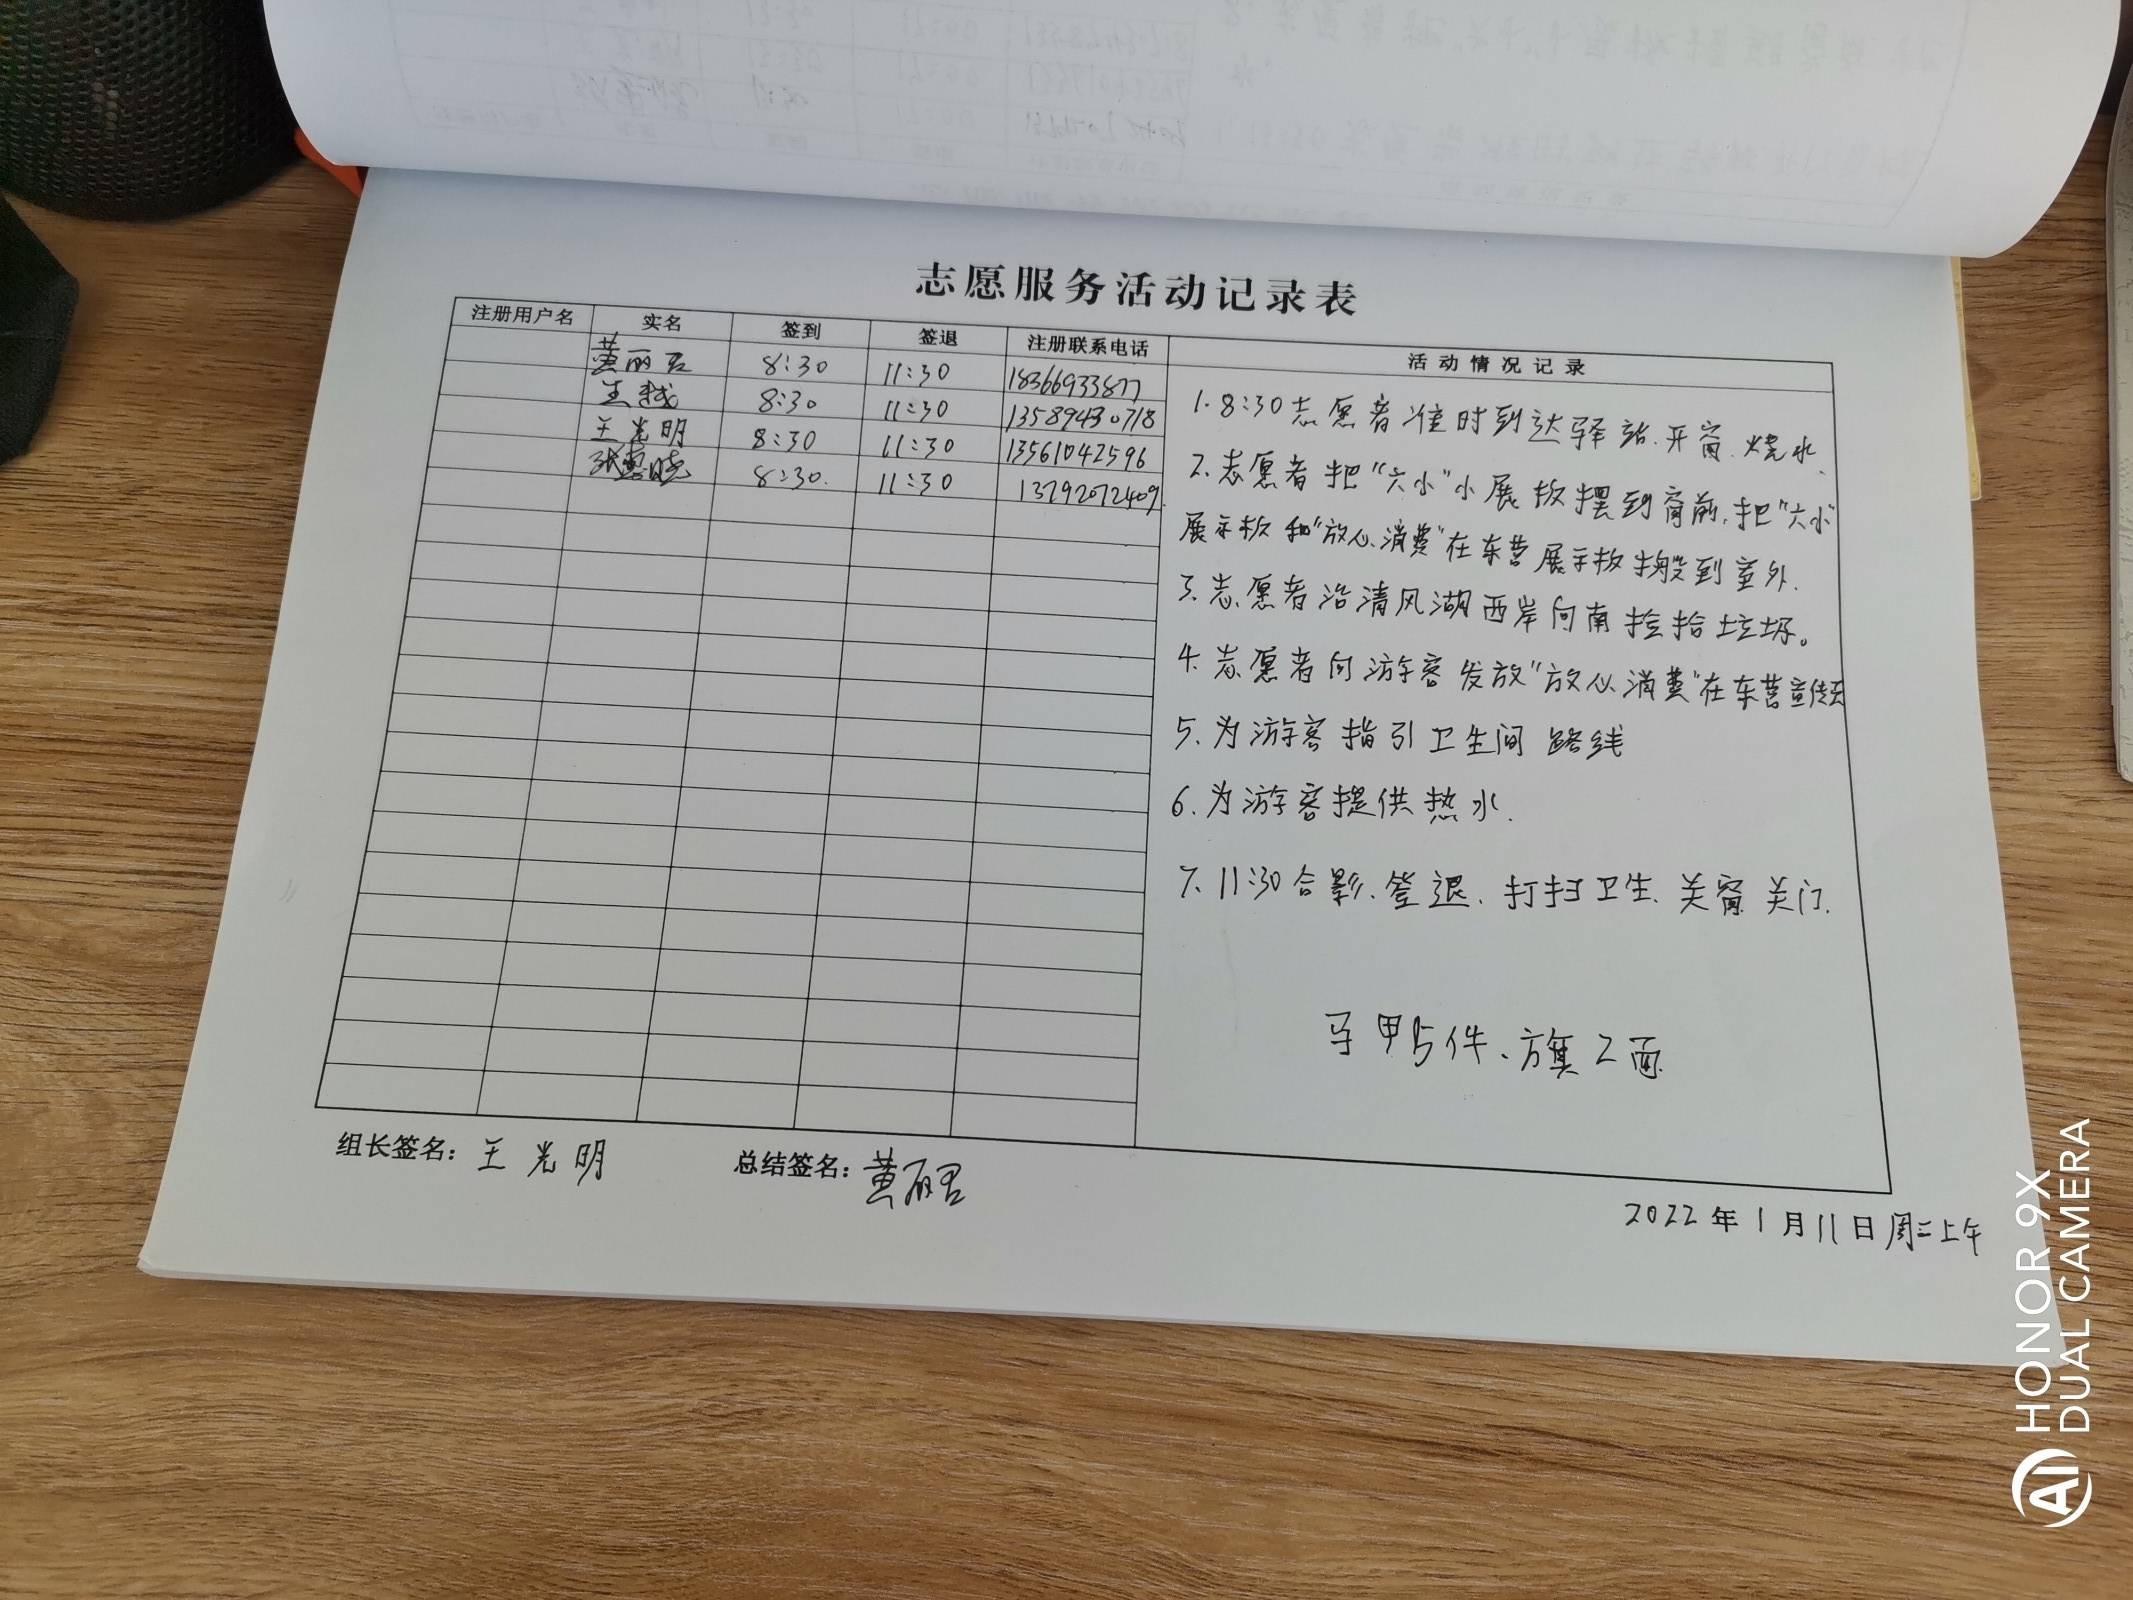 志愿服务活动记录表
注册用户名 实名 签到 签退 注册联系电话 活动情况记录
黄丽君 8:30 11:30 18366933877
王越 8:30 11:30 13589430718
王光明 8:30 11:30 13561042596
8:30. 11:30 13792072409
1. 8:30志愿者准时到达驿站.开窗.烧水.
2.志愿者把"六小"小展板摆到窗前,把"六小"
展示板和"放心消费"在东营展示板搬到室外.
3.志愿者沿清风湖西岸向南捡拾垃圾。
4.志愿者向游客发放"放心消费"在东营宣传页
5.为游客指引卫生间路线
6.为游客提供热水.
7. 11:30合影.签退.打扫卫生.关窗关门.
马甲5件、旗2面
组长签名：王光明 总结签名：黄丽君
2022年1月11日周二上午
HONOR 9X
DUAL CAMERA
AI